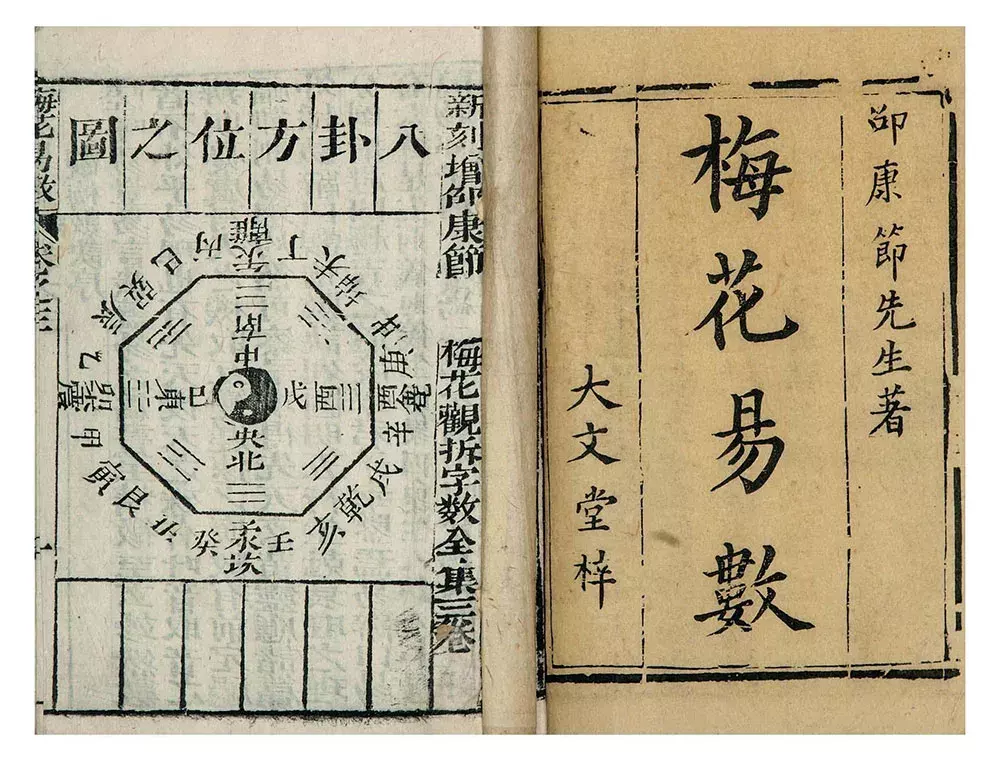 邵康節先生著
梅花易數
大文堂梓
新刻增邵康節
梅花觀拆字數全集三卷
八卦方位之圖
丙
離
丁
未
坤
申
庚
酉
辛
戌
乾
亥
壬
坎
癸
艮
寅
甲
卯
震
乙
辰
巽
巳
南
中
東
巳
戊
西
央
北
梅花易數
卷之三